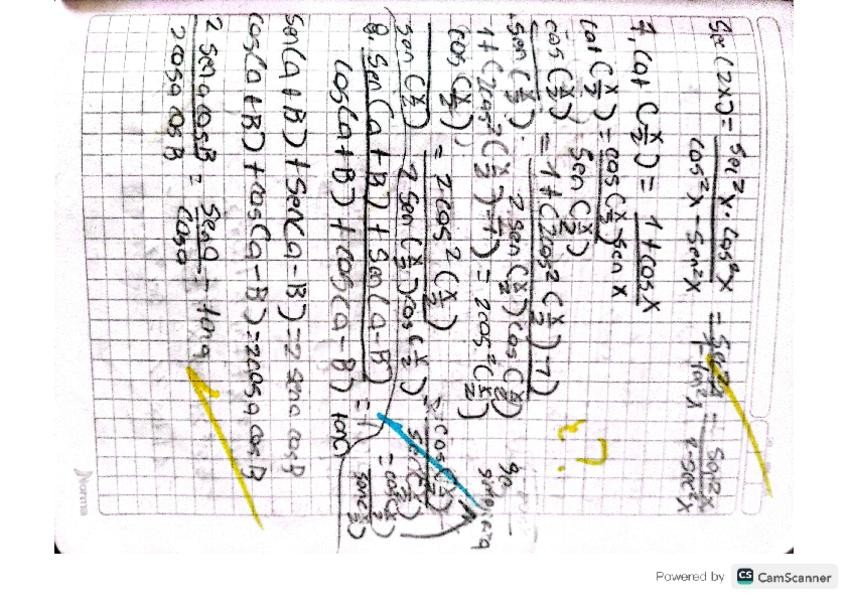 Sec(2x) = sec²x · cos²x / cos²x - sen²x = sec²x / 1 - tan²x = sec²x / 2 - sec²x
7. Cot (x/2) = 1 + cos x / sen x
cot (x/2) = cos (x/2) / sen (x/2)
cos (x/2) / sen (x/2) = 1 + (2cos² (x/2) - 1) / 2 sen (x/2) cos (x/2)
1 + (2cos² (x/2) - 1) = 2cos² (x/2)
cos (x/2) / sen (x/2) = 2cos² (x/2) / 2 sen (x/2) cos (x/2) = cos (x/2) / sen (x/2)
= cos (x/2) / sen (x/2)
?
8. Sen(a + B) + Sen(a - B) / cos(a + B) + cos(a - B) = tan
sen(a + B) + sen(a - B) = 2 sen a cos B
cos(a + B) + cos(a - B) = 2 cos a cos B
2 sen a cos B / 2 cos a cos B = sen a / cos a = tan a
Norma
Powered by CS CamScanner